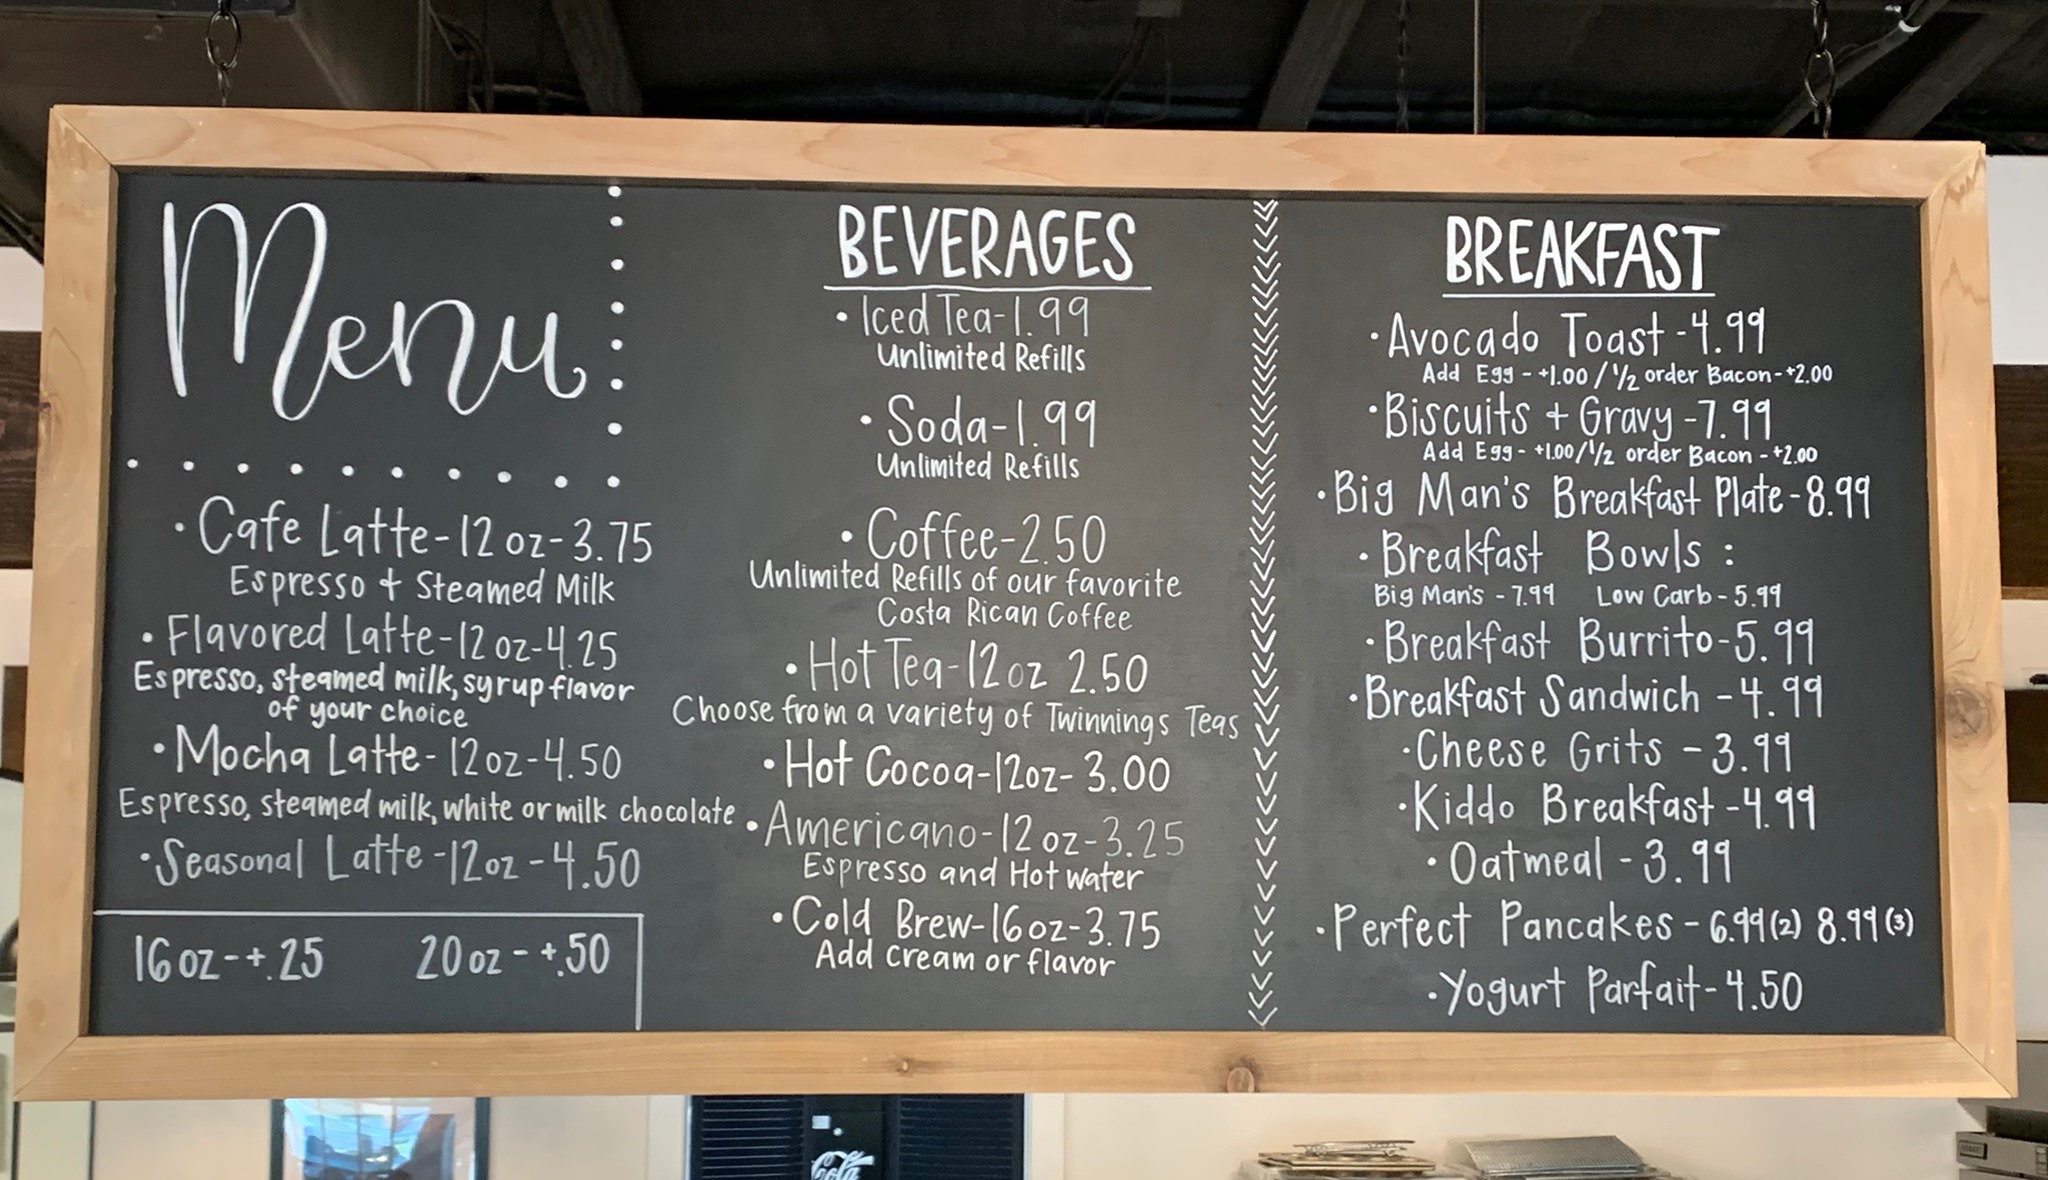 Menu
• Cafe Latte-12 oz-3.75
Espresso + Steamed Milk
• Flavored Latte-12 oz-4.25
Espresso, steamed milk, syrup flavor
of your choice
• Mocha Latte- 12oz-4.50
Espresso, steamed milk, white or milk chocolate
• Seasonal Latte -12oz -4.50
16 oz-+.25 20 oz - +.50
BEVERAGES
• Iced Tea-1.99
Unlimited Refills
• Soda-1.99
Unlimited Refills
• Coffee-2.50
Unlimited Refills of our favorite
Costa Rican Coffee
• Hot Tea-12oz 2.50
Choose from a variety of Twinnings Teas
• Hot Cocoa-12oz- 3.00
• Americano-12 oz-3.25
Espresso and Hot water
• Cold Brew-16oz-3.75
Add cream or flavor
BREAKFAST
• Avocado Toast -4.99
Add Egg - +1.00 / 1/2 order Bacon-+2.00
• Biscuits + Gravy -7.99
Add Egg- +1.00/1/2 order Bacon -+2.00
• Big Man's Breakfast Plate-8.99
• Breakfast Bowls :
Big Man's - 7.99 Low Carb- 5.99
• Breakfast Burrito-5.99
• Breakfast Sandwich -4.99
• Cheese Grits - 3.99
• Kiddo Breakfast -4.99
• Oatmeal -3.99
• Perfect Pancakes - 6.99(2) 8.99(3)
• Yogurt Parfait- 4.50